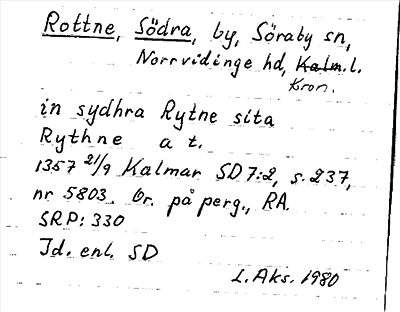 Rottne, Södra, by, Söraby sn,
Norrvidinge hd, Kalm. l.
Kron.
in sydhra Rytne sita
Rythne a t.
1357 21/9 Kalmar SD 7:2, s. 237,
nr 5803. Or. på perg., RA.
SRP: 330
Id. enl. SD
L. Aks. 1980